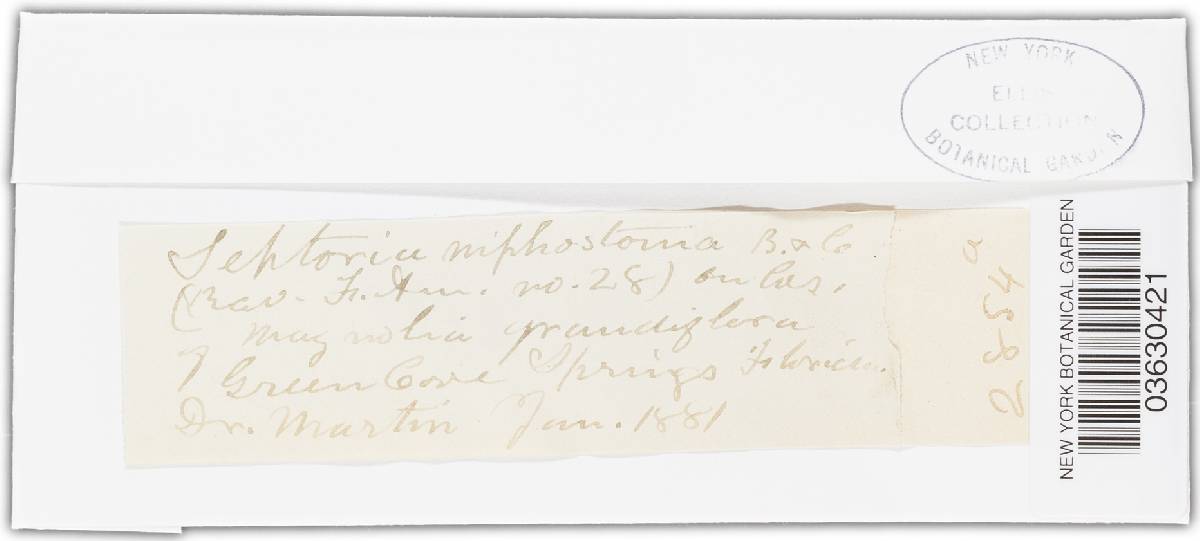 NEW YORK
ELLIS
COLLECTION
BOTANICAL GARDEN
Septoria niphostoma B. & C
(Rav. F. Am. no. 28) on lvs,
of Magnolia grandiflora
Green Cove Springs Florida.
Dr. Martin Jan. 1881
2654
NEW YORK BOTANICAL GARDEN
03630421